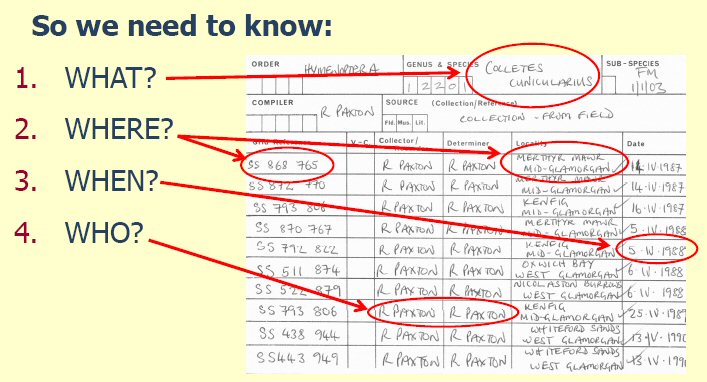 So we need to know:
1. WHAT?
2. WHERE?
3. WHEN?
4. WHO?
ORDER HYMENOPTERA GENUS & SPECIES 1 2 2 0 1 COLLETES CUNICULARIUS SUB-SPECIES FM 1/1/03
COMPILER R PAXTON SOURCE (Collection/Reference) Fld. Mus. Lit. COLLECTION - FROM FIELD
Grid Reference V-C Collector/ Determiner Locality Date
SS 868 765 R PAXTON R PAXTON MERTHYR MAWR MID-GLAMORGAN 14·IV·1987
SS 872 770 R PAXTON R PAXTON MERTHYR MAWR MID-GLAMORGAN 14·IV·1987
SS 793 806 R PAXTON R PAXTON KENFIG MID-GLAMORGAN 16·IV·1987
SS 870 767 R PAXTON R PAXTON MERTHYR MAWR MID-GLAMORGAN 5·IV·1988
SS 792 822 R PAXTON R PAXTON KENFIG MID-GLAMORGAN 5·IV·1988
SS 511 874 R PAXTON R PAXTON OXWICH BAY WEST GLAMORGAN 6 IV·1988
SS 522 879 R PAXTON R PAXTON NICOLASTON BURROWS WEST GLAMORGAN 6 IV·1988
SS 793 806 R PAXTON R PAXTON KENFIG MID-GLAMORGAN 25·IV·1989
SS 438 944 R PAXTON R PAXTON WHITEFORD SANDS WEST GLAMORGAN
SS443 949 R PAXTON R PAXTON WHITEFORD SANDS WEST GLAMORGAN